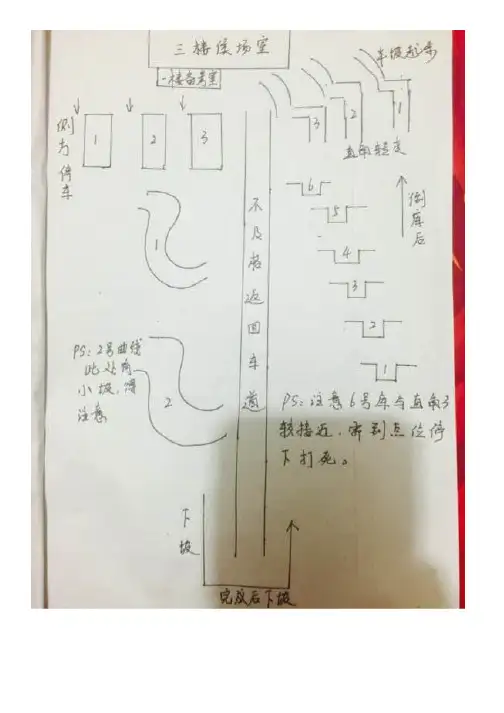 三楼候场室
一楼备考室
半坡起步
1
2
3
直角转弯
侧方停车
1
2
3
倒库后
6
5
4
3
2
1
不及格返回车道
1
2
PS:2号曲线
此处有
小坡,得
注意
PS:注意6号库与直角3
较接近,听到点位停
下打死。
下坡
完成后下坡